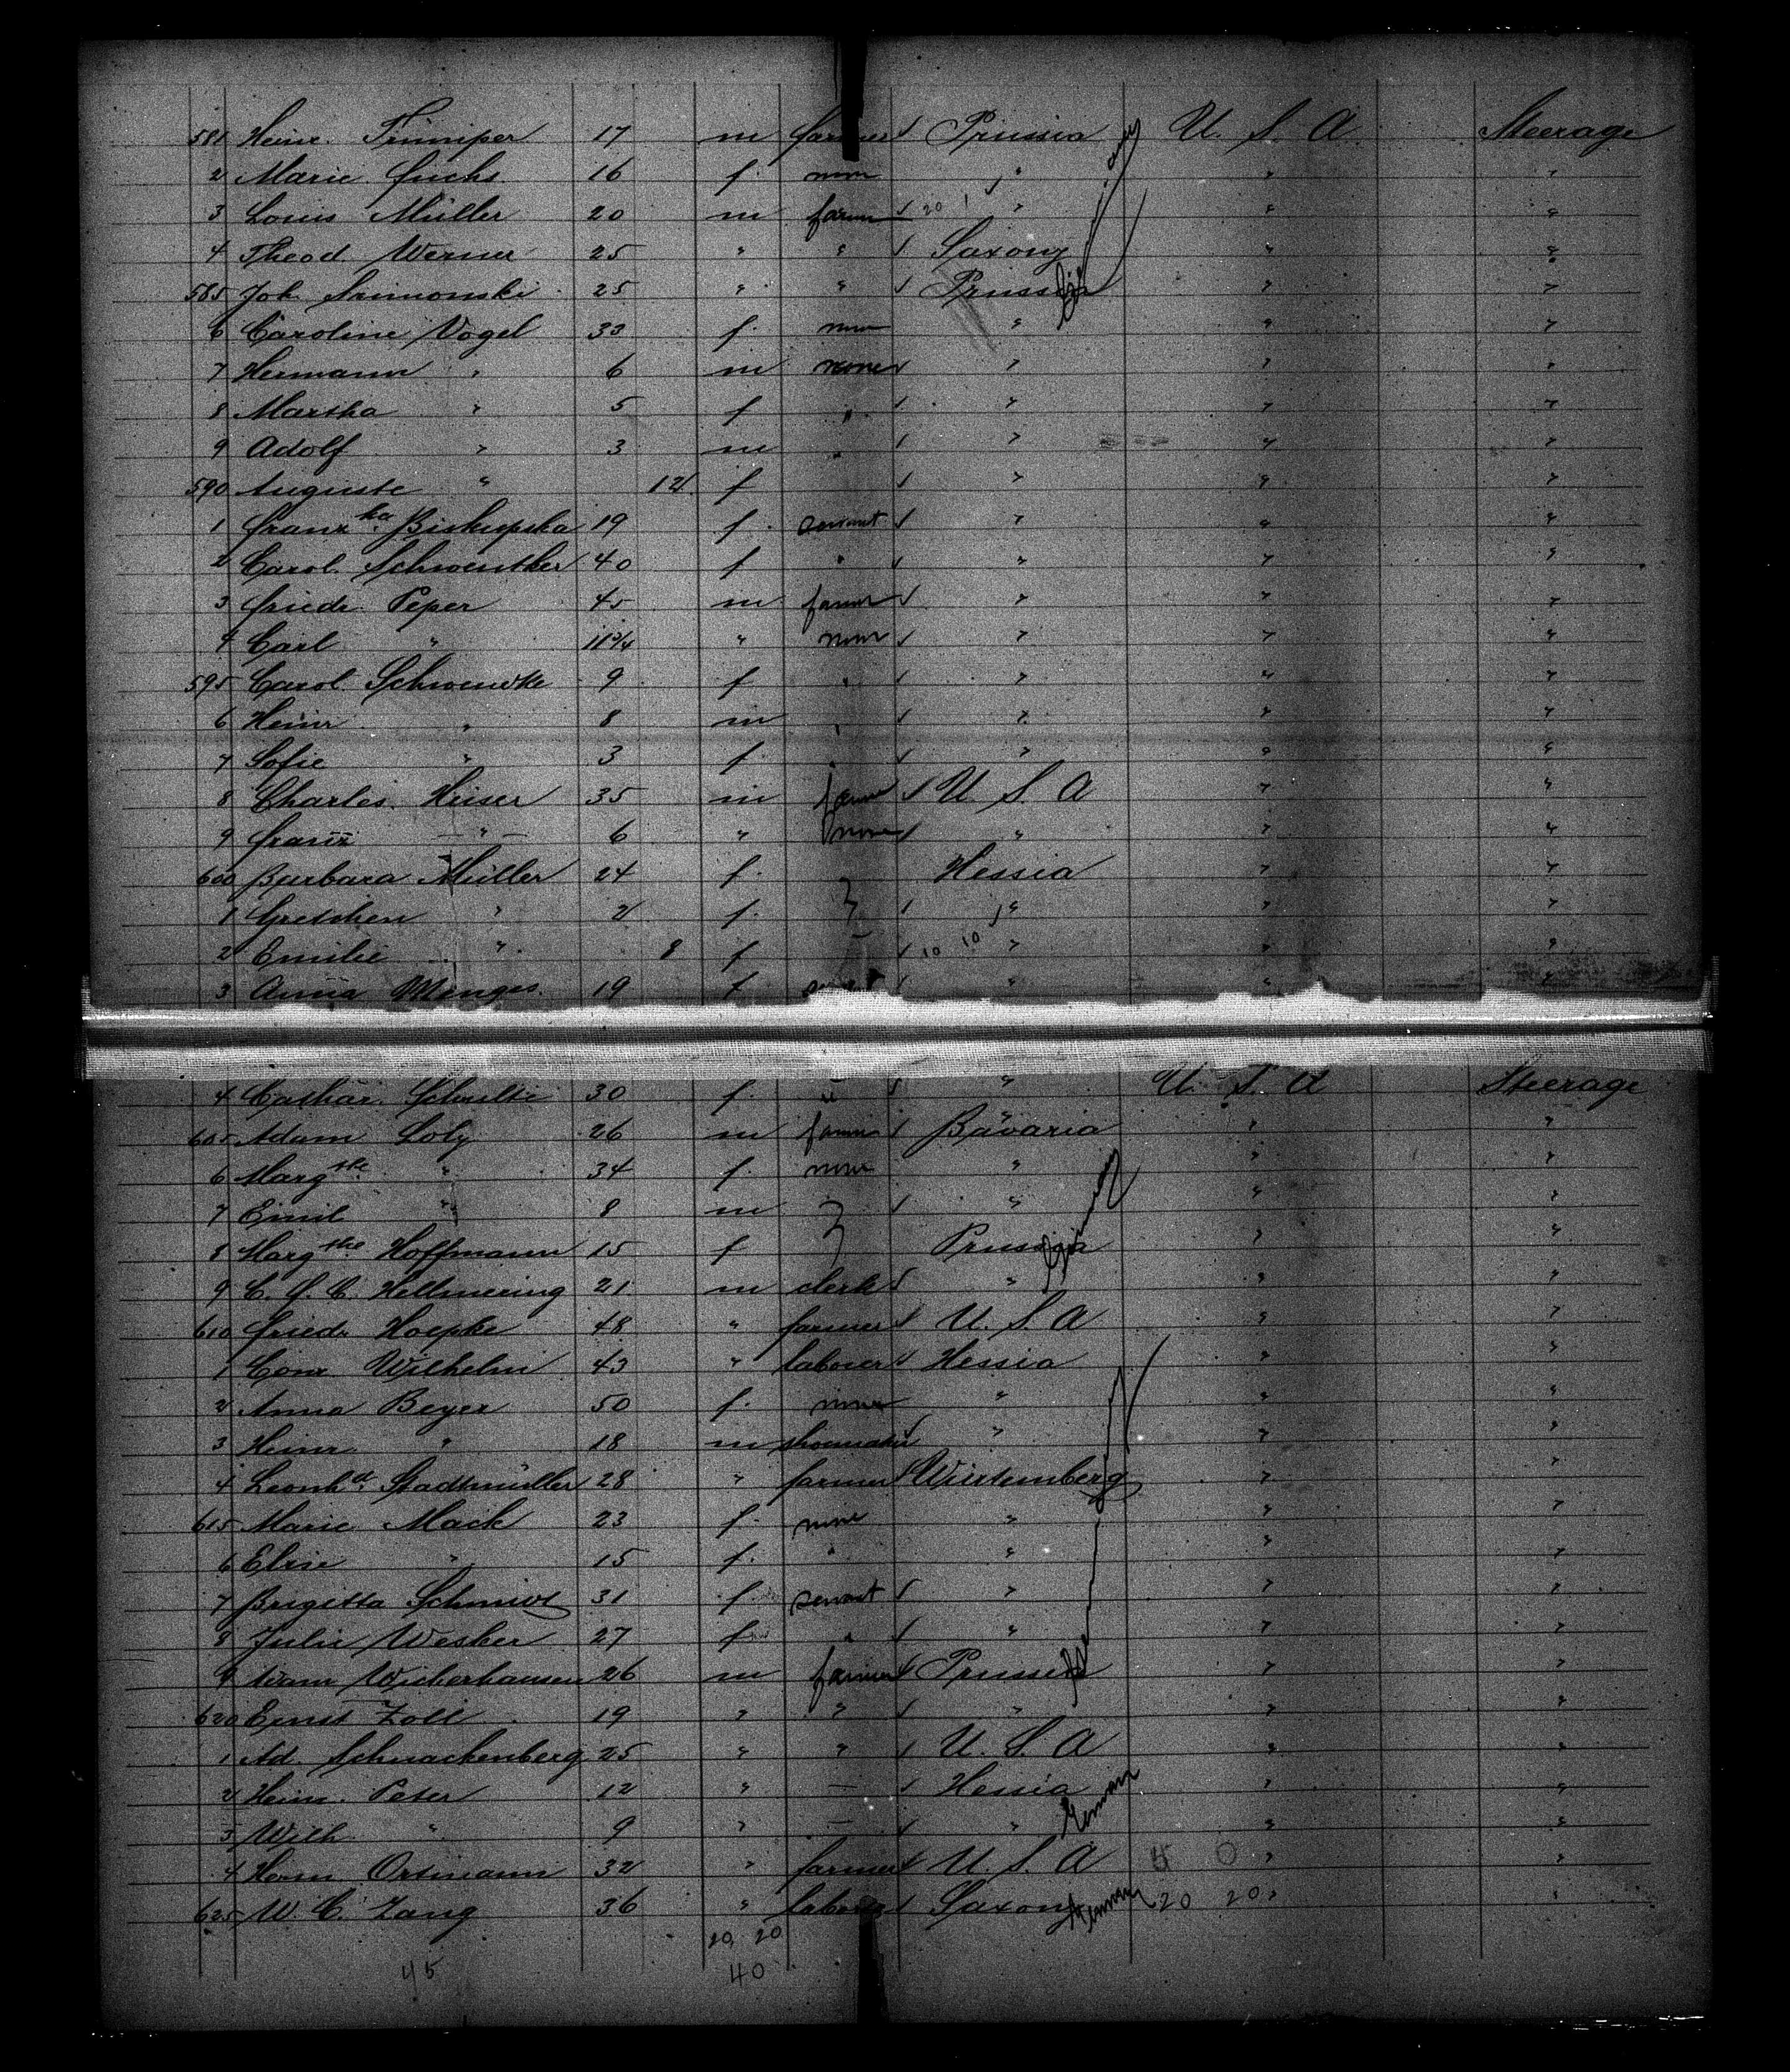 581 Heinr. Timmper 17 m farmer Prussia U. S. A Steerage
2 Marie Fuchs 16 f. none " " "
3 Louis Müller 20 m farmer 20 1 " " "
4 Theod. Werner 25 " " Saxony " "
585 Joh. 25 " " Prussia " "
6 Caroline Vogel 33 f. none " " "
7 Hermann " 6 m none " " "
8 Martha " 5 f " " " "
9 Adolf " 3 m " " " "
590 Auguste " 12 f " " "
1 Franzka Biskupska 19 f. servant " " "
2 Carol. Schwentker 40 f " " " "
3 Friedr. Peper 45 m farmer " " "
4 Carl " 11 3/4 " none " " "
595 Carol. Schwencke 9 f " " " "
6 Heinr " 8 m " " " "
7 Sofie " 3 f. " " " "
8 Charles Heiser 35 m farmer U. S. A " "
9 Franz " 6 " none " " "
600 Barbara Müller 24 f. Hessia " "
1 Gretchen " 2 f. " " "
2 Emilie " 8 f 10 10 " " "
3 Anna Menges 19 f servant " " "
4 Cathar. Schulti 30 f. " " U. S. A Steerage
605 Adam Loly 26 m farmer Bavaria " "
6 Margthe " 34 f. none " " "
7 Emil " 8 m " " "
8 Margthe Hoffmann 15 f Prussia " "
9 C. F. C. Hellmering 21 m clerk " " "
610 Friedr Hoepke 48 " farmer U. S. A " "
1 Conr Wilhelm 43 " labourer Hessia " "
2 Anna Beyer 50 f. none " " "
3 Heinr " 18 m shoemaker " " "
4 Leonhd. Stadtmüller 28 " farmer Würtemberg " "
615 Marie Mack 23 f. none " " "
6 Elise " 15 f. " " " "
7 Brigitta Schmidt 31 f. servant " " "
8 Julie Wesker 27 f " " " "
9 Wickerhausen 26 m farmer Prussia " "
620 Ernst Zoll 19 " " " " "
1 Ad. Schnackenberg 25 " " U. S. A " "
2 Heinr. Peter 12 " — Hessia German " "
3 Wilh " 9 " — " " "
4 Herm Ortmann 32 " farmer U. S. A 4 0 " "
625 W. C. Zang 36 " labourer Saxony German 20 20 " "
20 20
45 40